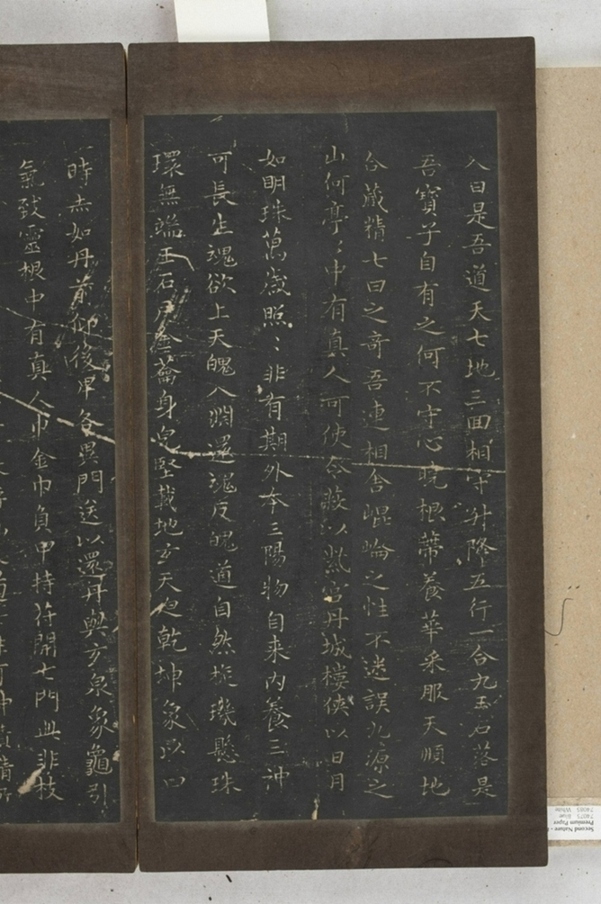 入日是吾道天七地三回相守升降五行一合九玉石落是
吾寶子自有之何不守心曉根蒂養華采服天順地
合藏精七日之奇吾連相舍崐崘之性不迷誤九源之
山何亭〻中有真人可使令蔽以紫宮丹城樓俠以日月
如明珠萬歲照〻非有期外本三陽物自来内養三神
可長生魂欲上天魄入淵還魂反魄道自然旋璣懸珠
環無端玉石戶金籥身皃堅載地玄天迫乾坤象以四
時赤如丹前仰後卑各異門送以還丹與玄泉象龜引
氣致靈根中有真人巾金巾負甲持符開七門此非枝